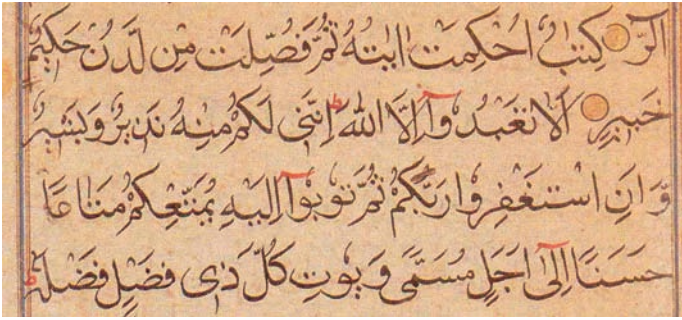 الٓرٰ كِتٰبٌ اُحْكِمَتْ اٰيٰتُهٗ ثُمَّ فُصِّلَتْ مِنْ لَّدُنْ حَكِيْمٍ
خَبِيْرٍ اَلَّا تَعْبُدُوْٓا اِلَّا اللّٰهَ ط اِنَّنِىْ لَكُمْ مِنْهُ نَذِيْرٌ وَبَشِيْرٌ
وَّاَنِ اسْتَغْفِرُوْا رَبَّكُمْ ثُمَّ تُوْبُوْٓا اِلَيْهِ يُمَتِّعْكُمْ مَتَاعًا
حَسَنًا اِلٰٓى اَجَلٍ مُسَمًّى وَيُؤْتِ كُلَّ ذِىْ فَضْلٍ فَضْلَهٗ ط